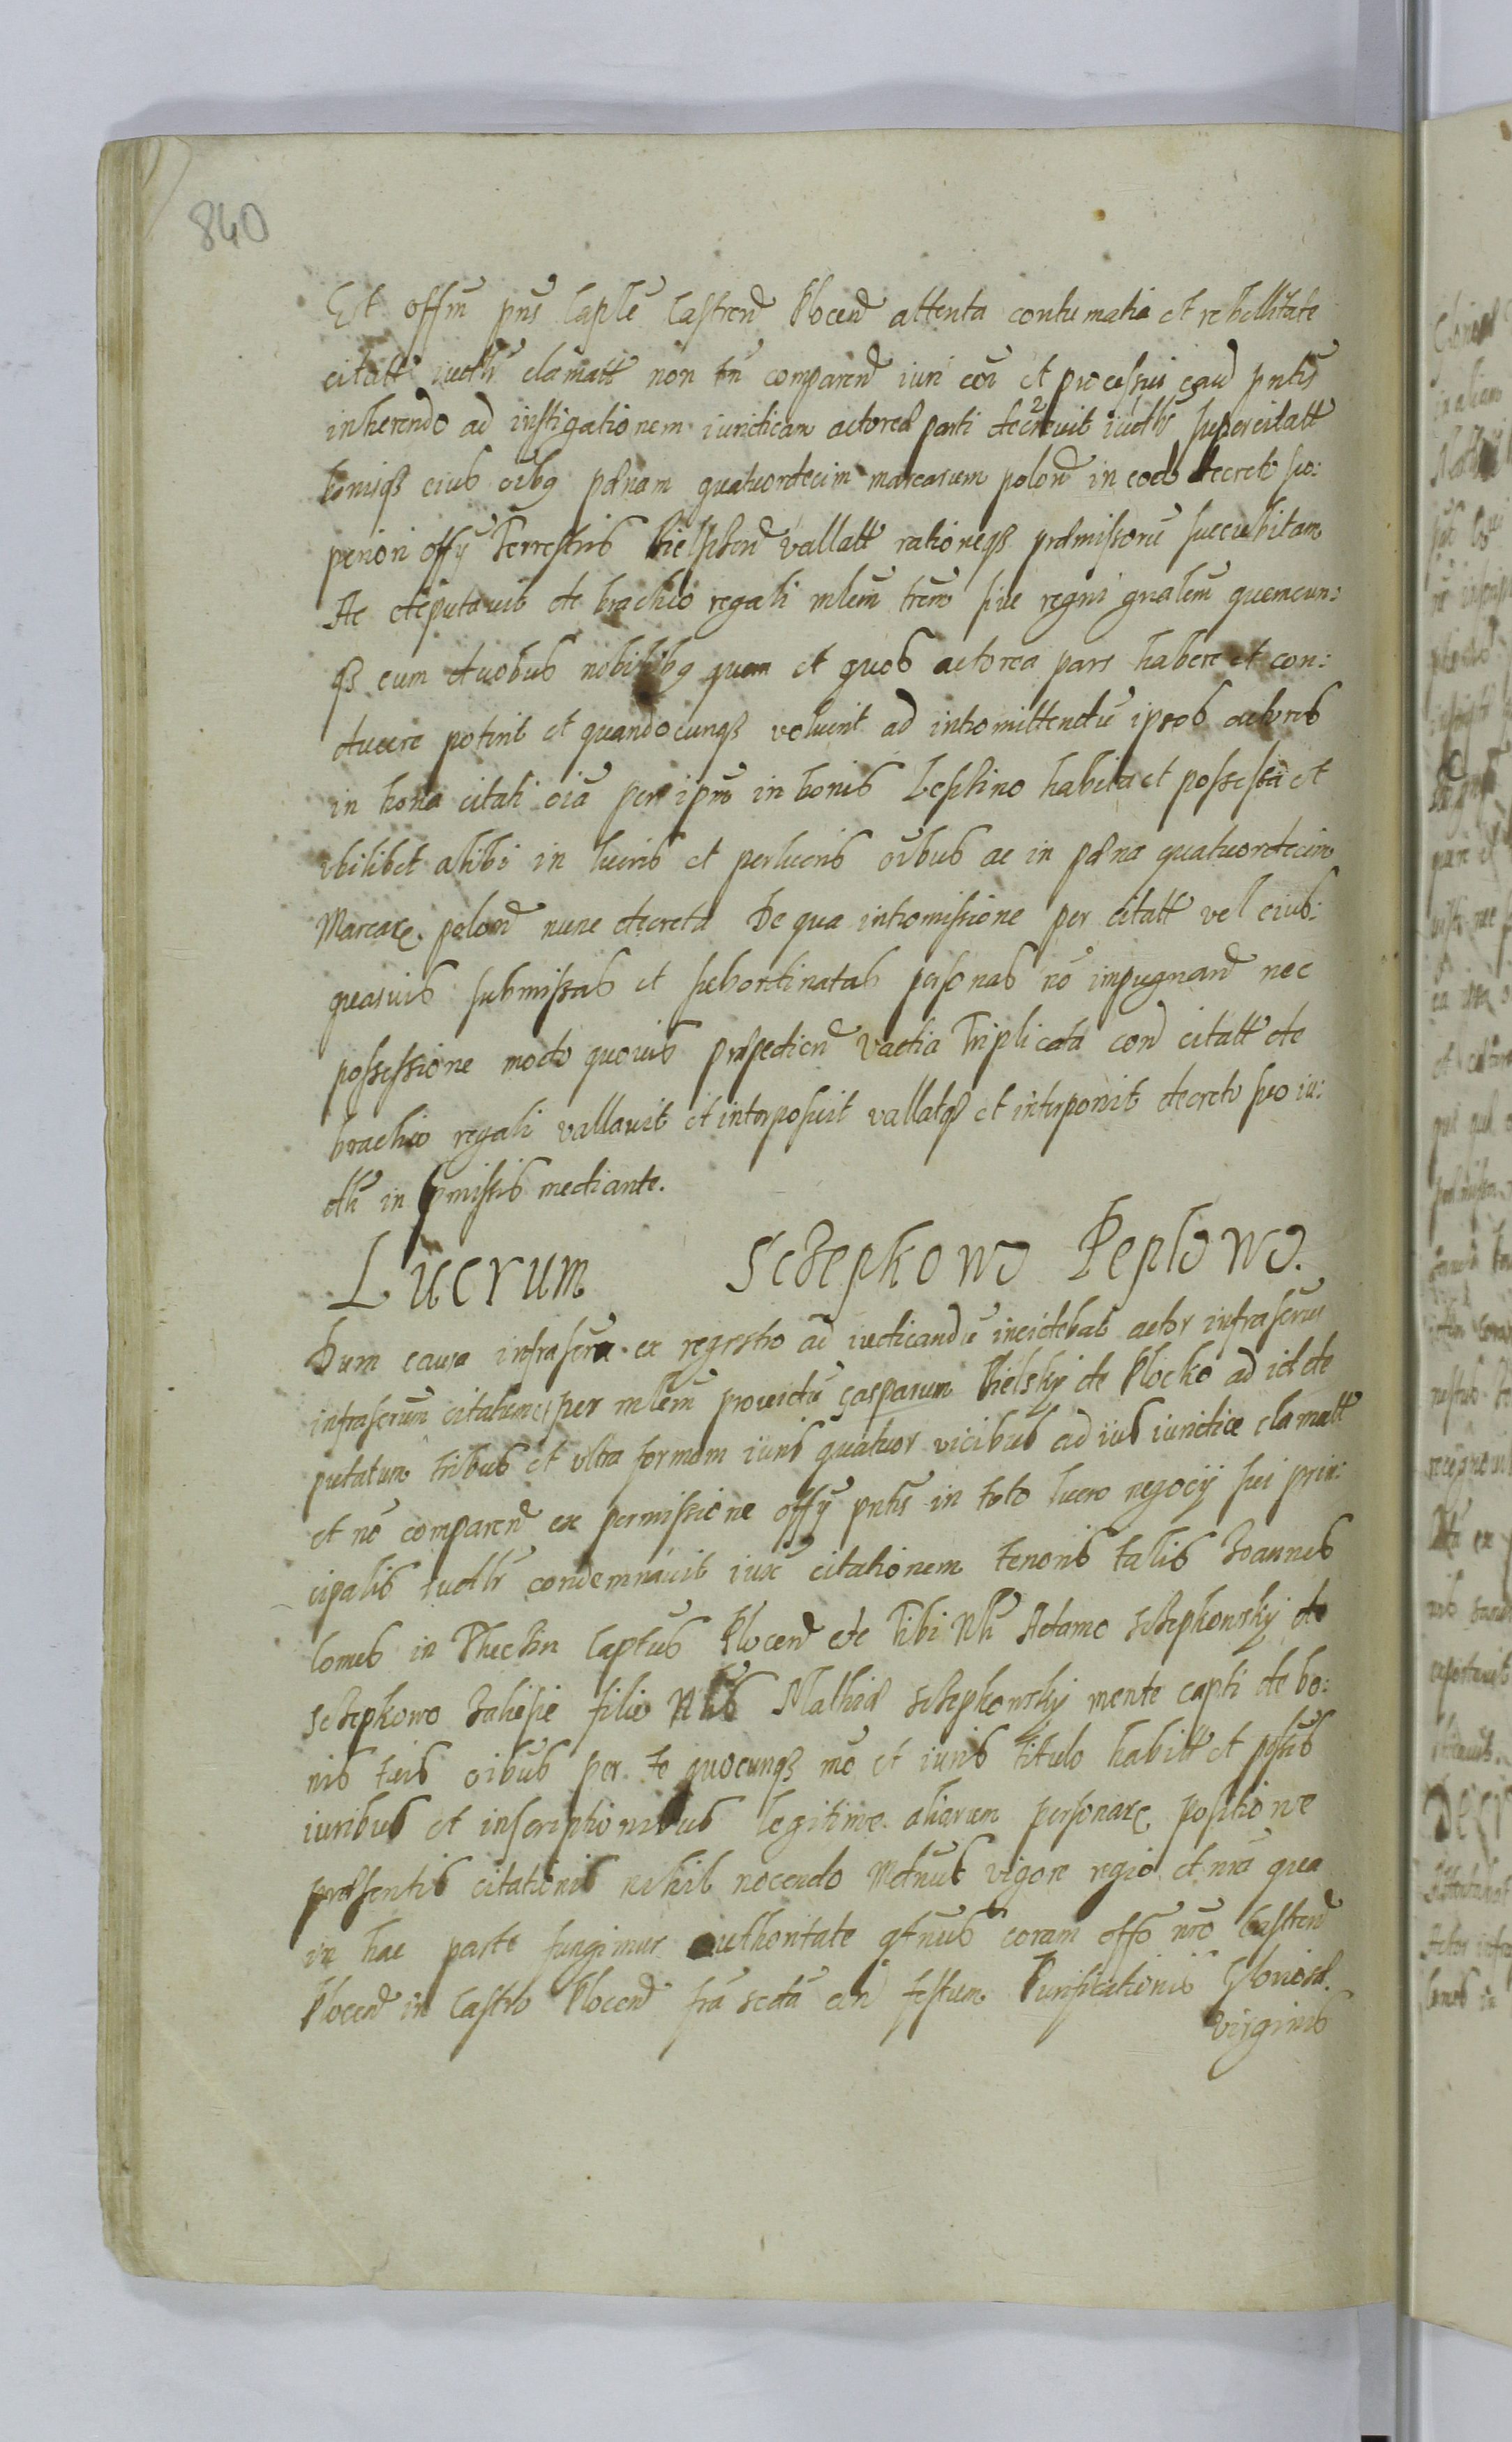 840
Et offm pns Caple Castren Plocen attenta contumatia et rebellitate
citatt iudlr clamatt non tn comparen iuri coi et processui eaud pntis
inherendo ad instigationem iuridicam actoreæ parti decrevit iudlr super citatt
bonisqȝ eius oibȝ pænam quatuordecim marcarum polon in eodo decreto su:
periori offy Terrestris Bielscen vallatt rationeqȝ præmissoru succubitam
Ac deputavit de brachio regali mlem trem sive regni gnalem quemcun:
qȝ cum duobus nobilibȝ quem et quos actorea pars habere et con:
ducere potverit et quandocunqȝ voluerit ad intromittendu ipsos actores
in bona citati oia per ipm in bonis Leschno habita et possessa et
ubilibet alibi in lucris et perlucris oibus ac in pæna quatuordecim
Marcarȩ polon nunc decreta De qua intromissione per citatt vel eius:
quasvis submissas et subordinatas personas no impugnand nec
possessione modo quovis præpediend vadia Triplicata con citatt de
brachio regali vallavit et interposuit vallatqȝ et interponit decreto suo iu:
dli in pmissis mediante.
Lucrum Sczepkowo Peplowo.
Dum causa infrascra ex regestro ad iudicandu incidebat actor infrascrus
infrascrum citatum per mlem providu Casparum Bielsky de Plocko ad id de
putatum tribus et ultra formam iuris quatuor vicibus ad ius iuridice clamatt
et no comparen ex permissione offy pntis in toto lucro negocy sui prin:
cipalis iudlr condemnavit iux citationem tenoris talis Joannes
Comes in Thechin Captus Plocen etc Tibi Nli Adamo Sczepkowsky de
Sczepkowo Zalesie filio Nlis Mathiæ Sczepkowsky mente capti de bo:
nis tuis oibus per te quocunqȝ mo et iuris titulo habitt et possis
iuribus et inscriptionibus legitime aliarum personarȩ positione
præsentis citationis nihil nocendo Mdmus vigore regio et nra qua
in hac parte fungimur authoritate qtnus coram offo nro Castren
Plocen in Castro Plocen fra scda an festum Purificationis Gloriosæ
virginis